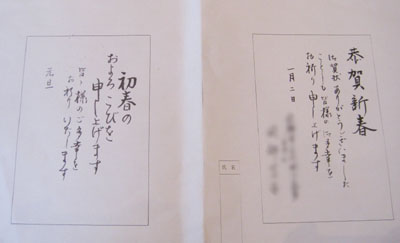 恭賀新春
御賀状ありがとうございました
ことしも皆様の御多幸を
お祈り申し上げます
一月二日
氏名
初春の
およろこびを
申し上げます
皆々様のご多幸を
お祈りいたします
元旦